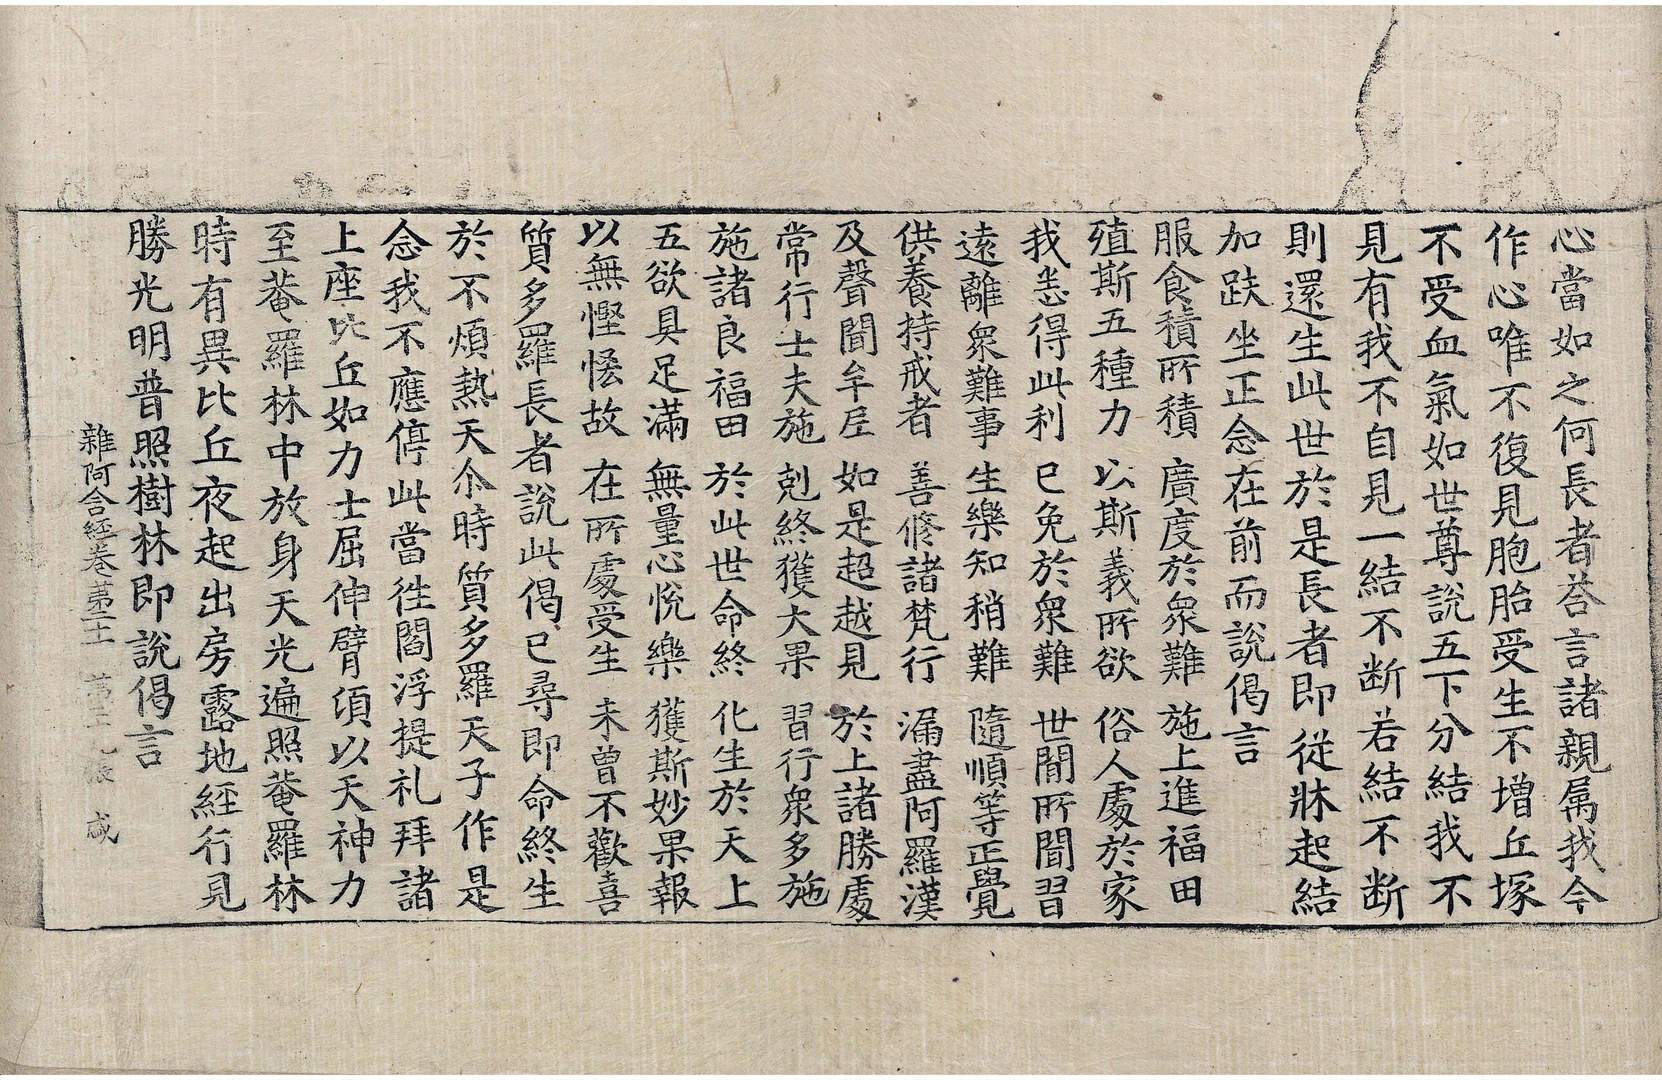 心當如之何長者荅言諸親属我今
作心唯不復見胞胎受生不增丘塚
不受血氣如世尊說五下分結我不
見有我不自見一結不断若結不断
則還生此世於是長者即從牀起結
加趺坐正念在前而說偈言
服食積所積　廣度於衆難　施上進福田
殖斯五種力　以斯義所欲　俗人處於家
我悉得此利　已免於衆難　世間所聞習
遠離衆難事　生樂知稍難　隨順等正覺
供養持戒者　善脩諸梵行　漏盡阿羅漢
及聲聞牟尼　如是超越見　於上諸勝處
常行士夫施　剋終獲大果　習行衆多施
施諸良福田　於此世命終　化生於天上
五欲具足滿　無量心悅樂　獲斯妙果報
以無慳悋故　在所處受生　未曾不歡喜
質多羅長者說此偈已尋即命終生
於不煩熱天尒時質多羅天子作是
念我不應停此當往閻浮提礼拜諸
上座比丘如力士屈伸臂須以天神力
至菴羅林中放身天光遍照菴羅林
時有異比丘夜起出房露地経行見
勝光明普照樹林即說偈言
雜阿含経卷苐二十一　苐三　張　咸